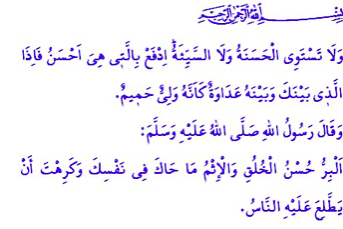 بِسْمِ اللهِ الرَّحْمٰنِ الرَّحِيمِ
وَلَا تَسْتَوِى الْحَسَنَةُ وَلَا السَّيِّئَةُ اِدْفَعْ بِالَّتِى هِىَ اَحْسَنُ فَاِذَا
الَّذِى بَيْنَكَ وَبَيْنَهُ عَدَاوَةٌ كَاَنَّهُ وَلِىٌّ حَمِيمٌ.
وَقَالَ رَسُولُ اللهِ صَلَّى اللهُ عَلَيْهِ وَسَلَّمَ:
اَلْبِرُّ حُسْنُ الْخُلُقِ وَالْاِثْمُ مَا حَاكَ فِى نَفْسِكَ وَكَرِهْتَ اَنْ
يَطَّلِعَ عَلَيْهِ النَّاسُ.